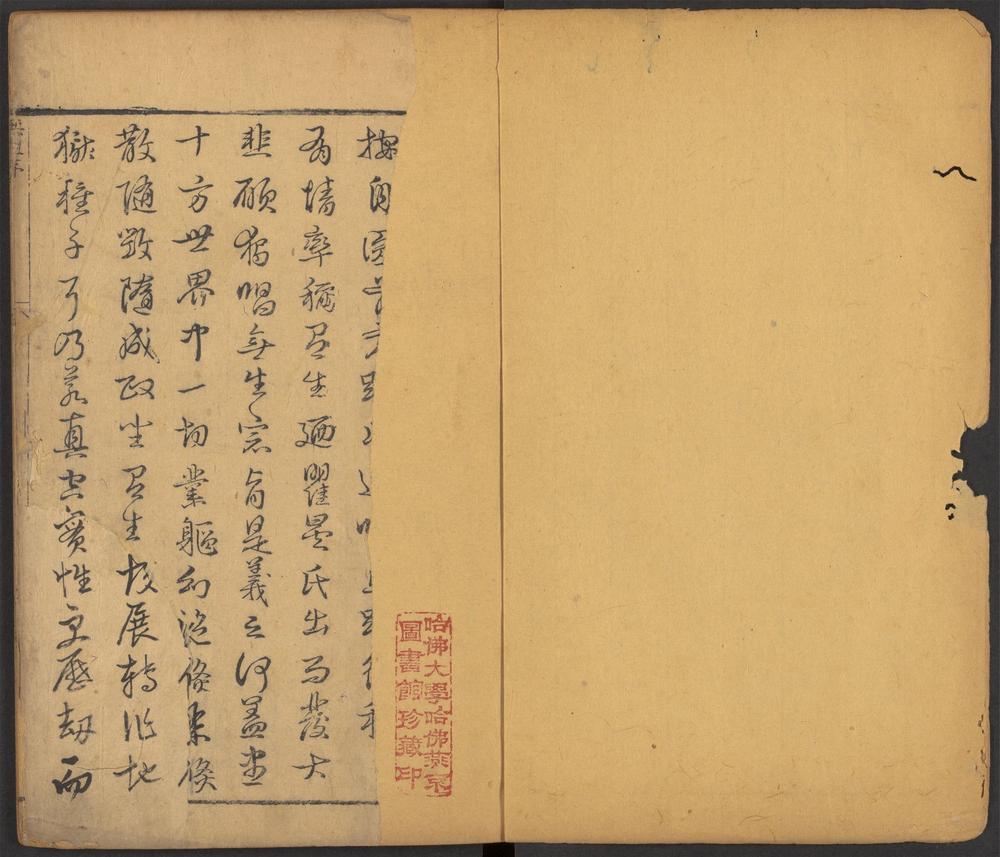 自
有情率稱眾生迺瞿曇氏出而發大
悲願獨唱無生宗旨是義云何蓋盡
十方世界中一切業軀幻泡倏來倏
散隨毀隨成政坐眾生故展轉作地
獄種子耳乃若真空實性更歷劫而
哈佛大學哈佛燕京
圖書館珍藏印